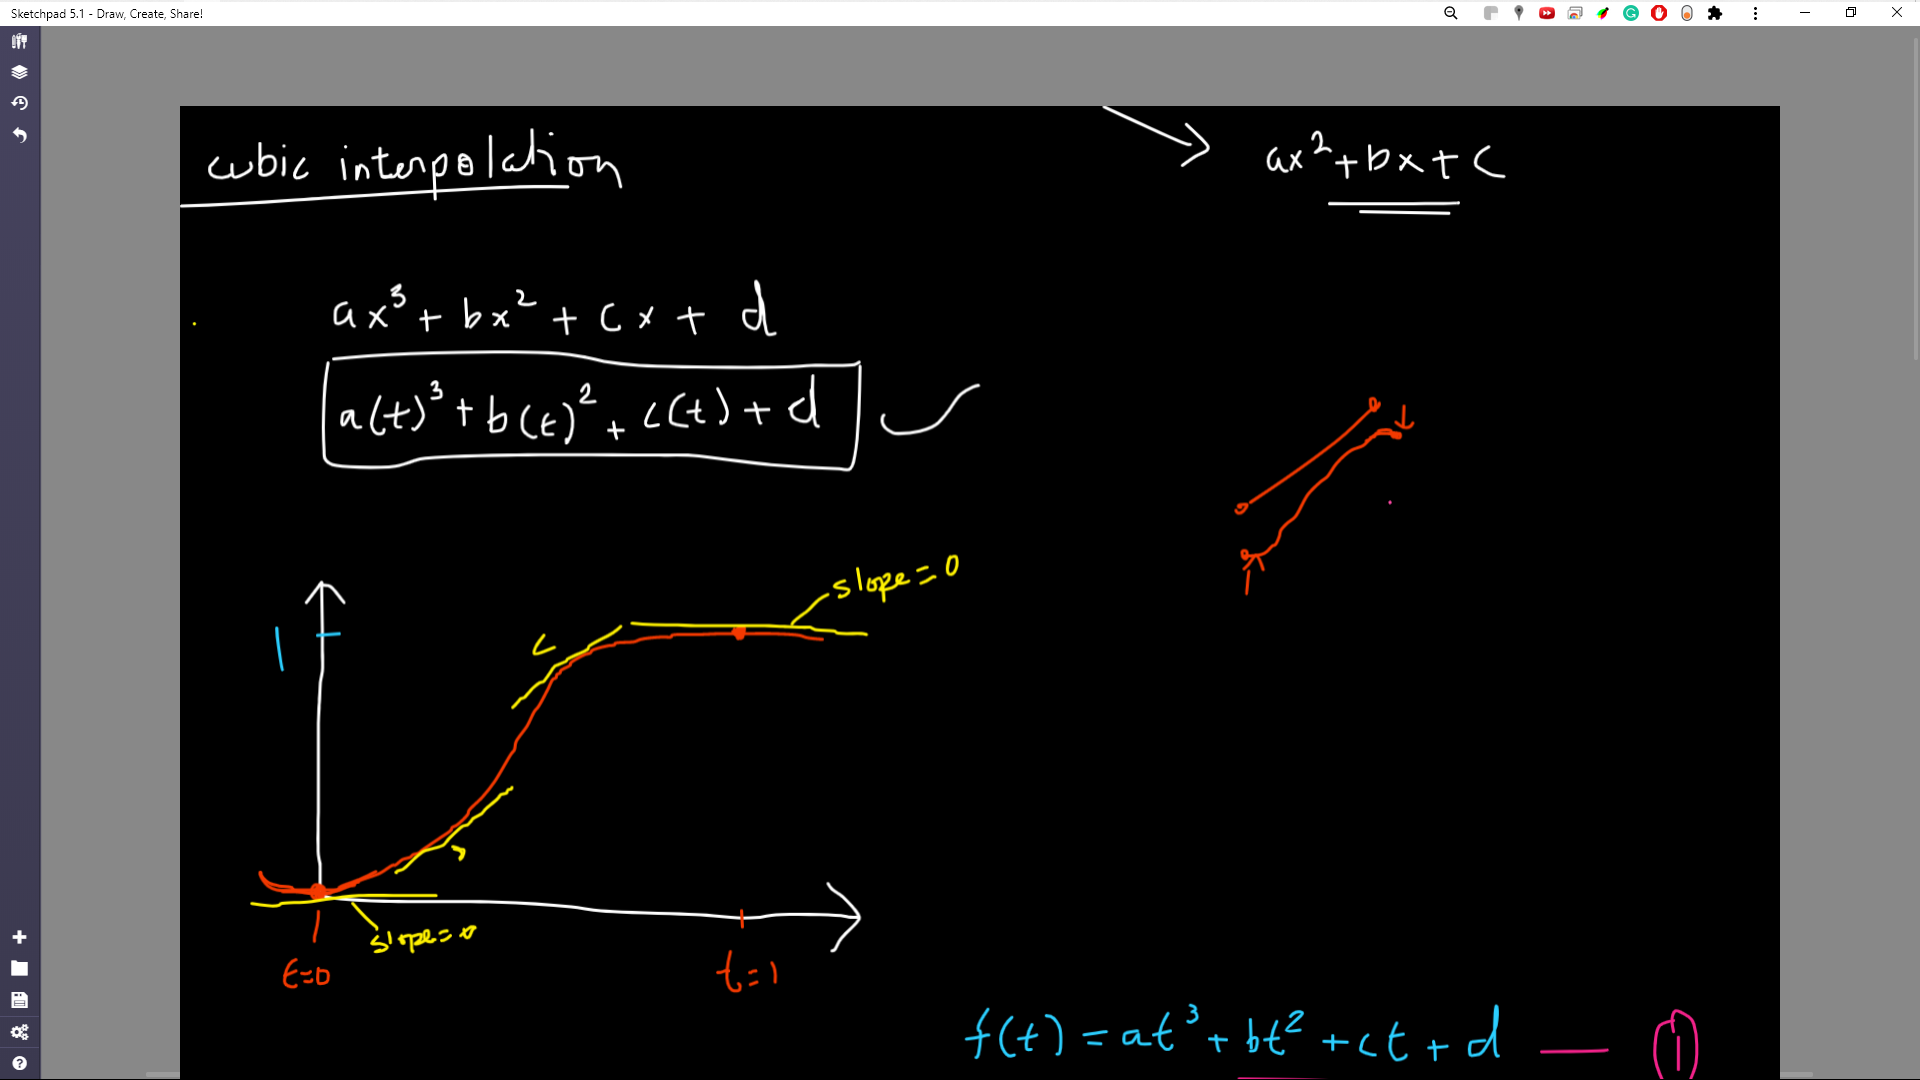 Sketchpad 5.1 - Draw, Create, Share!
cubic interpolation
ax²+bx+c
ax³+bx²+cx+d
a(t)³+b(t)²+c(t)+d
slope=0
1
slope=0
t=0
t=1
f(t)=at³+bt²+ct+d — ①